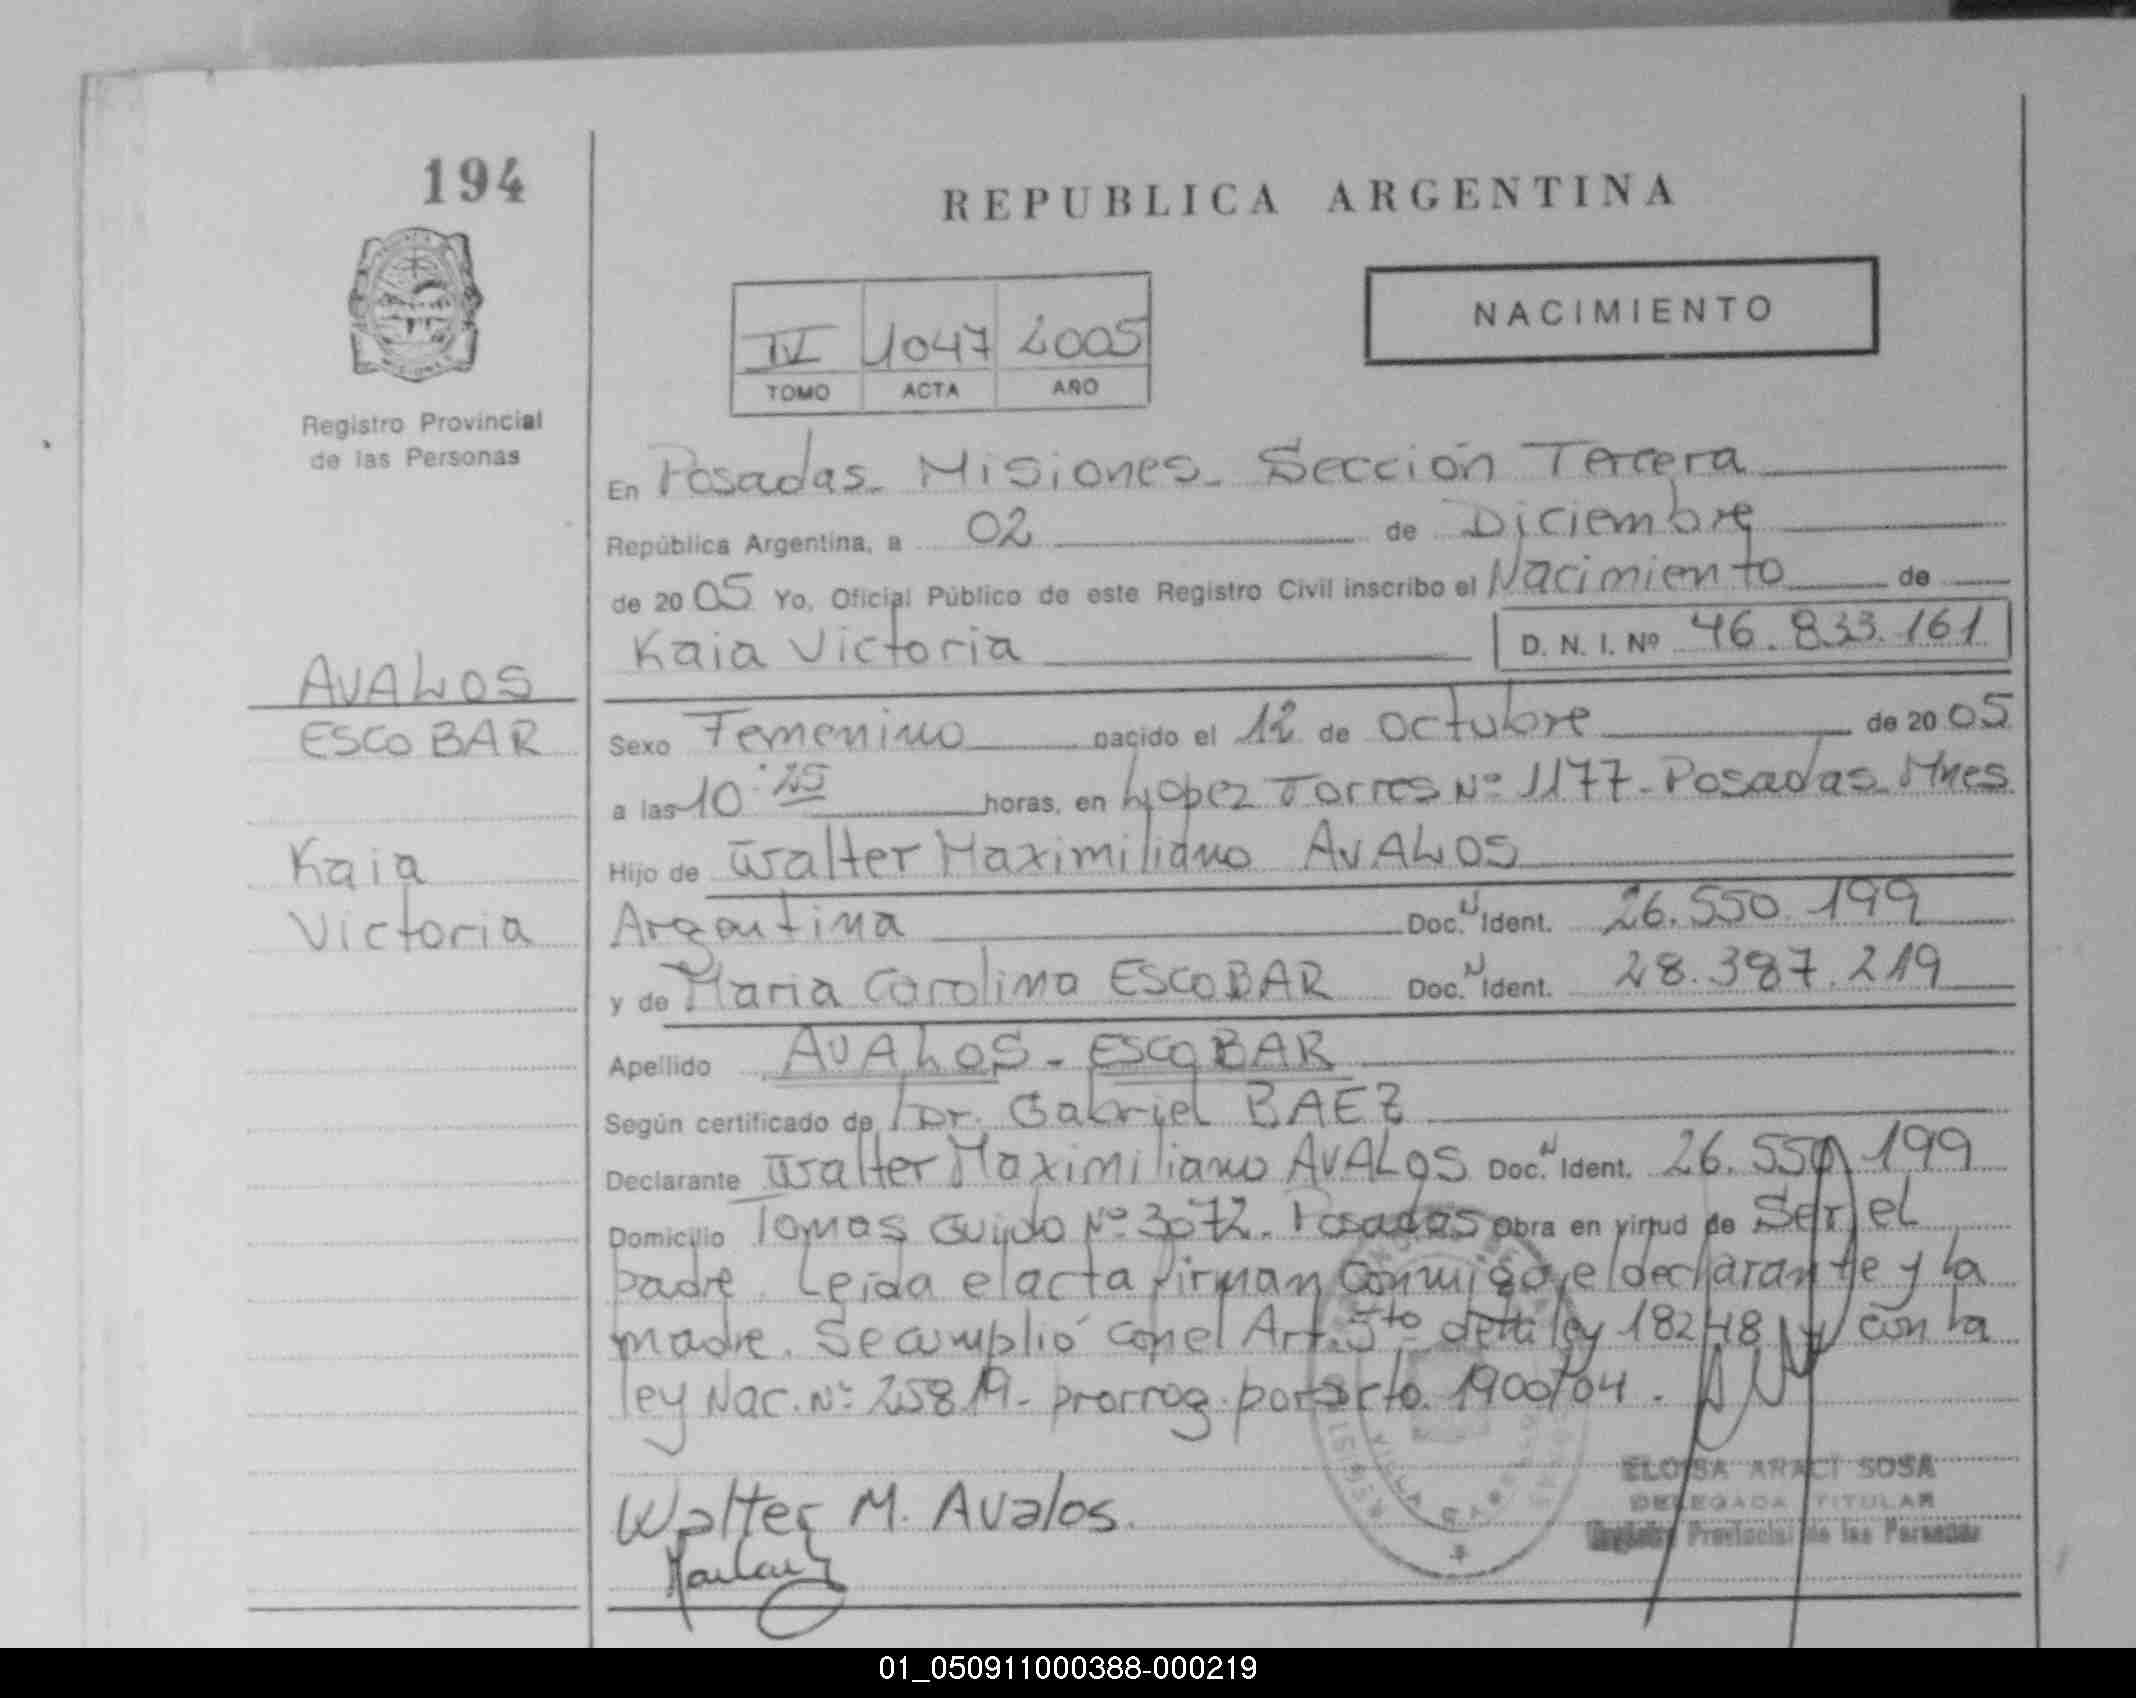 194
REPUBLICA ARGENTINA
NACIMIENTO
IV 1047 2005
TOMO ACTA AÑO
Registro Provincial
de las Personas
En Posadas - Misiones - Sección Tercera
República Argentina, a 02 de Diciembre
de 2005 Yo, Oficial Público de este Registro Civil inscribo el Nacimiento de
Kaia Victoria D. N. I. Nº 46.833.161
AVALOS
ESCOBAR
Kaia
Victoria
Sexo Femenino nacido el 12 de octubre de 2005
a las 10:25 horas, en López Torres Nº 1177 - Posadas - Mnes.
Hijo de Walter Maximiliano AVALOS
Argentina Doc. N Ident. 26.550.199
y de Maria Carolina ESCOBAR Doc. N Ident. 28.387.219
Apellido AVALOS - ESCOBAR
Según certificado de Dr. Gabriel BAEZ
Declarante Walter Maximiliano AVALOS Doc. N Ident. 26.550.199
Domicilio Tomas Guido Nº 3072 - Posadas obra en virtud de Ser el
padre. Leída el acta firman conmigo, el declarante y la
madre. Se cumplió con el Art. 5to de la ley 18248 y con la
ley Nac. Nº 25819 - prorrog. por 1900/04.
Walter M. Avalos.
ELOISA ARACI SOSA
DELEGADA TITULAR
Registro Provincial de las Personas
01_050911000388-000219